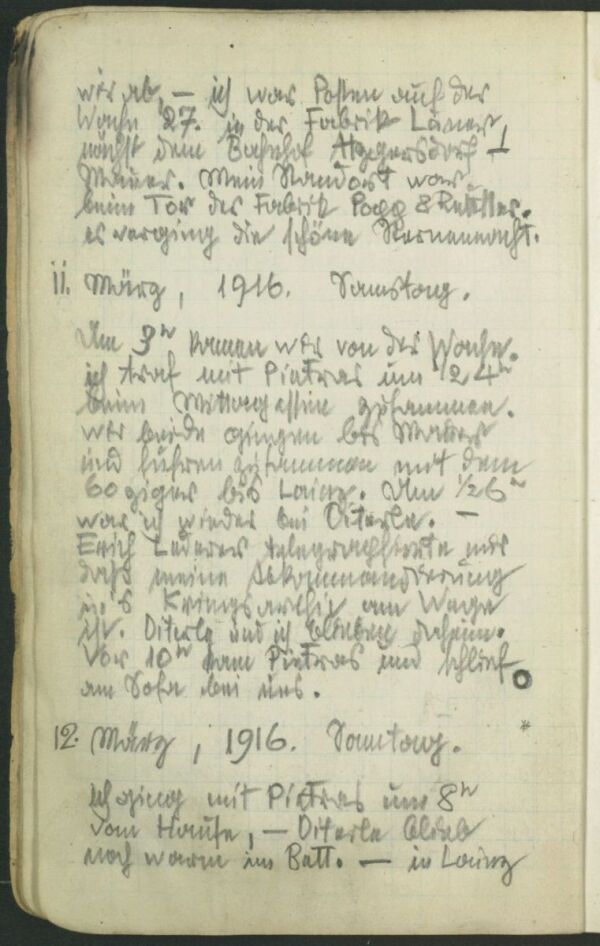 wir ab, — ich war Posten auf der
Wache 27. in der Fabrik
nächst dem Bahnhof Atzgersdorf –
Mauer. Mein Standort war
beim Tor der Fabrik Popp &
es verging die schöne Sternennacht.
11. März, 1916. Samstag.
Um 3h kamen wir von der Wache.
ich traf mit Pietras um 1/2 4h
beim Mittagessen zusammen.
wir beide gingen bis Mauer
und fuhren zusammen mit dem
60ziger bis Lainz. Um 1/2 6h
war ich wieder bei Diterle. —
Erich Lederer telegraphierte mir
daß meine Abkommandierung
in's Kriegsarchiv am Wege
ist. Diterle und ich blieben daheim.
Vor 10h kam Pietras und schlief
am Sofa bei uns.
12. März, 1916. Sonntag. *
ich ging mit Pietras um 8h
vom Hause, — Diterle blieb
noch warm im Bett. — in Lainz